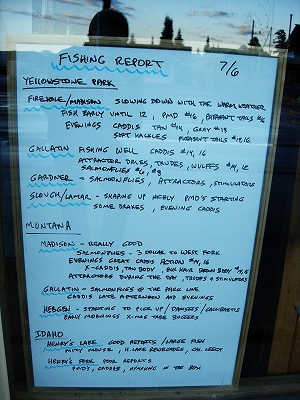 FISHING REPORT 7/6
YELLOWSTONE PARK
FIREHOLE/MADISON SLOWING DOWN WITH THE WARM WEATHER
FISH EARLY UNTIL 12, PMD #16, PHEASANT TAILS #16
EVENINGS CADDIS TAN #14, GRAY #18
SOFT HACKLES PHEASANT TAILS #14,16
GALLATIN FISHING WELL CADDIS #14,16
ATTRACTOR DRIES, TRUDES, WULFFS #14,12
SALMONFLIES #6, #8
GARDNER - SALMONFLIES, ATTRACTORS, STIMULATORS
SLOUGH/LAMAR - SHAPING UP NICELY PMD'S STARTING
SOME DRAKES, EVENING CADDIS
MONTANA
MADISON - REALLY GOOD
SALMONFLIES - 3 DOLLAR TO WEST FORK
EVENINGS GREAT CADDIS ACTION #14,16
X-CADDIS, TAN BODY, ELK HAIR BROWN BODY
ATTRACTORS DURING THE DAY, TRUDES & STIMULATORS
GALLATIN - SALMONFLIES @ THE PARK LINE
CADDIS LATE AFTERNOON AND EVENINGS
HEBGEN - STARTING TO PICK UP / DAMSELS / CALLIBAETIS
EARLY MORNINGS X-MAS TREE BUGGERS
IDAHO
HENRY'S LAKE GOOD REPORTS / LARGE FISH
MITY MOUSE, H. LAKE RENEGADES, CAL LEECH
HENRY'S FORK POOR REPORTS
PMD'S, CADDIS, NYMPHING IN THE BOX